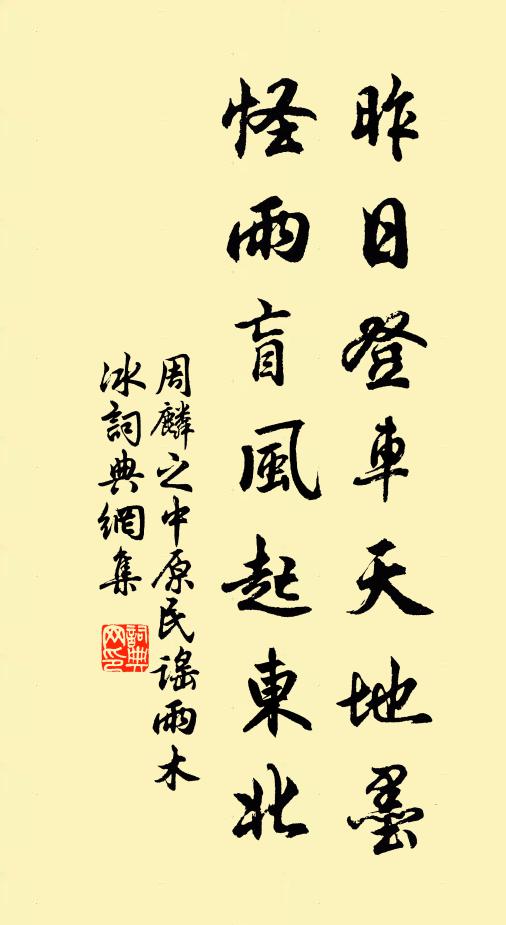 昨日登車天地墨
怪雨盲風起東北
周麟之中原民謠雨木
冰詞典網集
詞典
网印